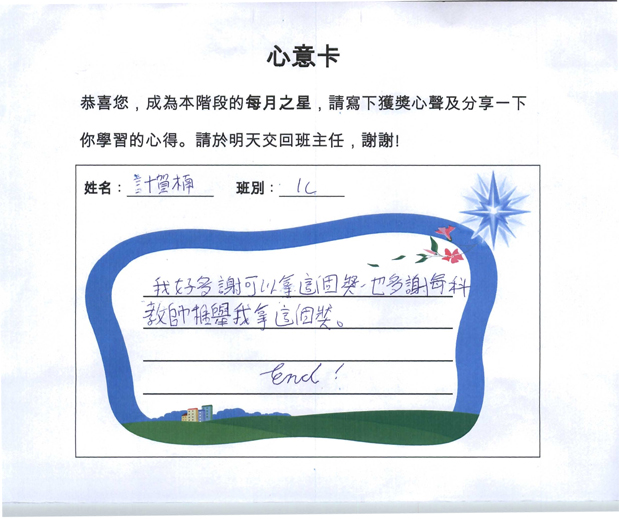 心意卡
恭喜您，成為本階段的每月之星，請寫下獲獎心聲及分享一下
你學習的心得。請於明天交回班主任，謝謝!
姓名：計賀楠 班別：1C
我好多謝可以拿這個獎，也多謝每科
教師推舉我拿這個獎。
End!